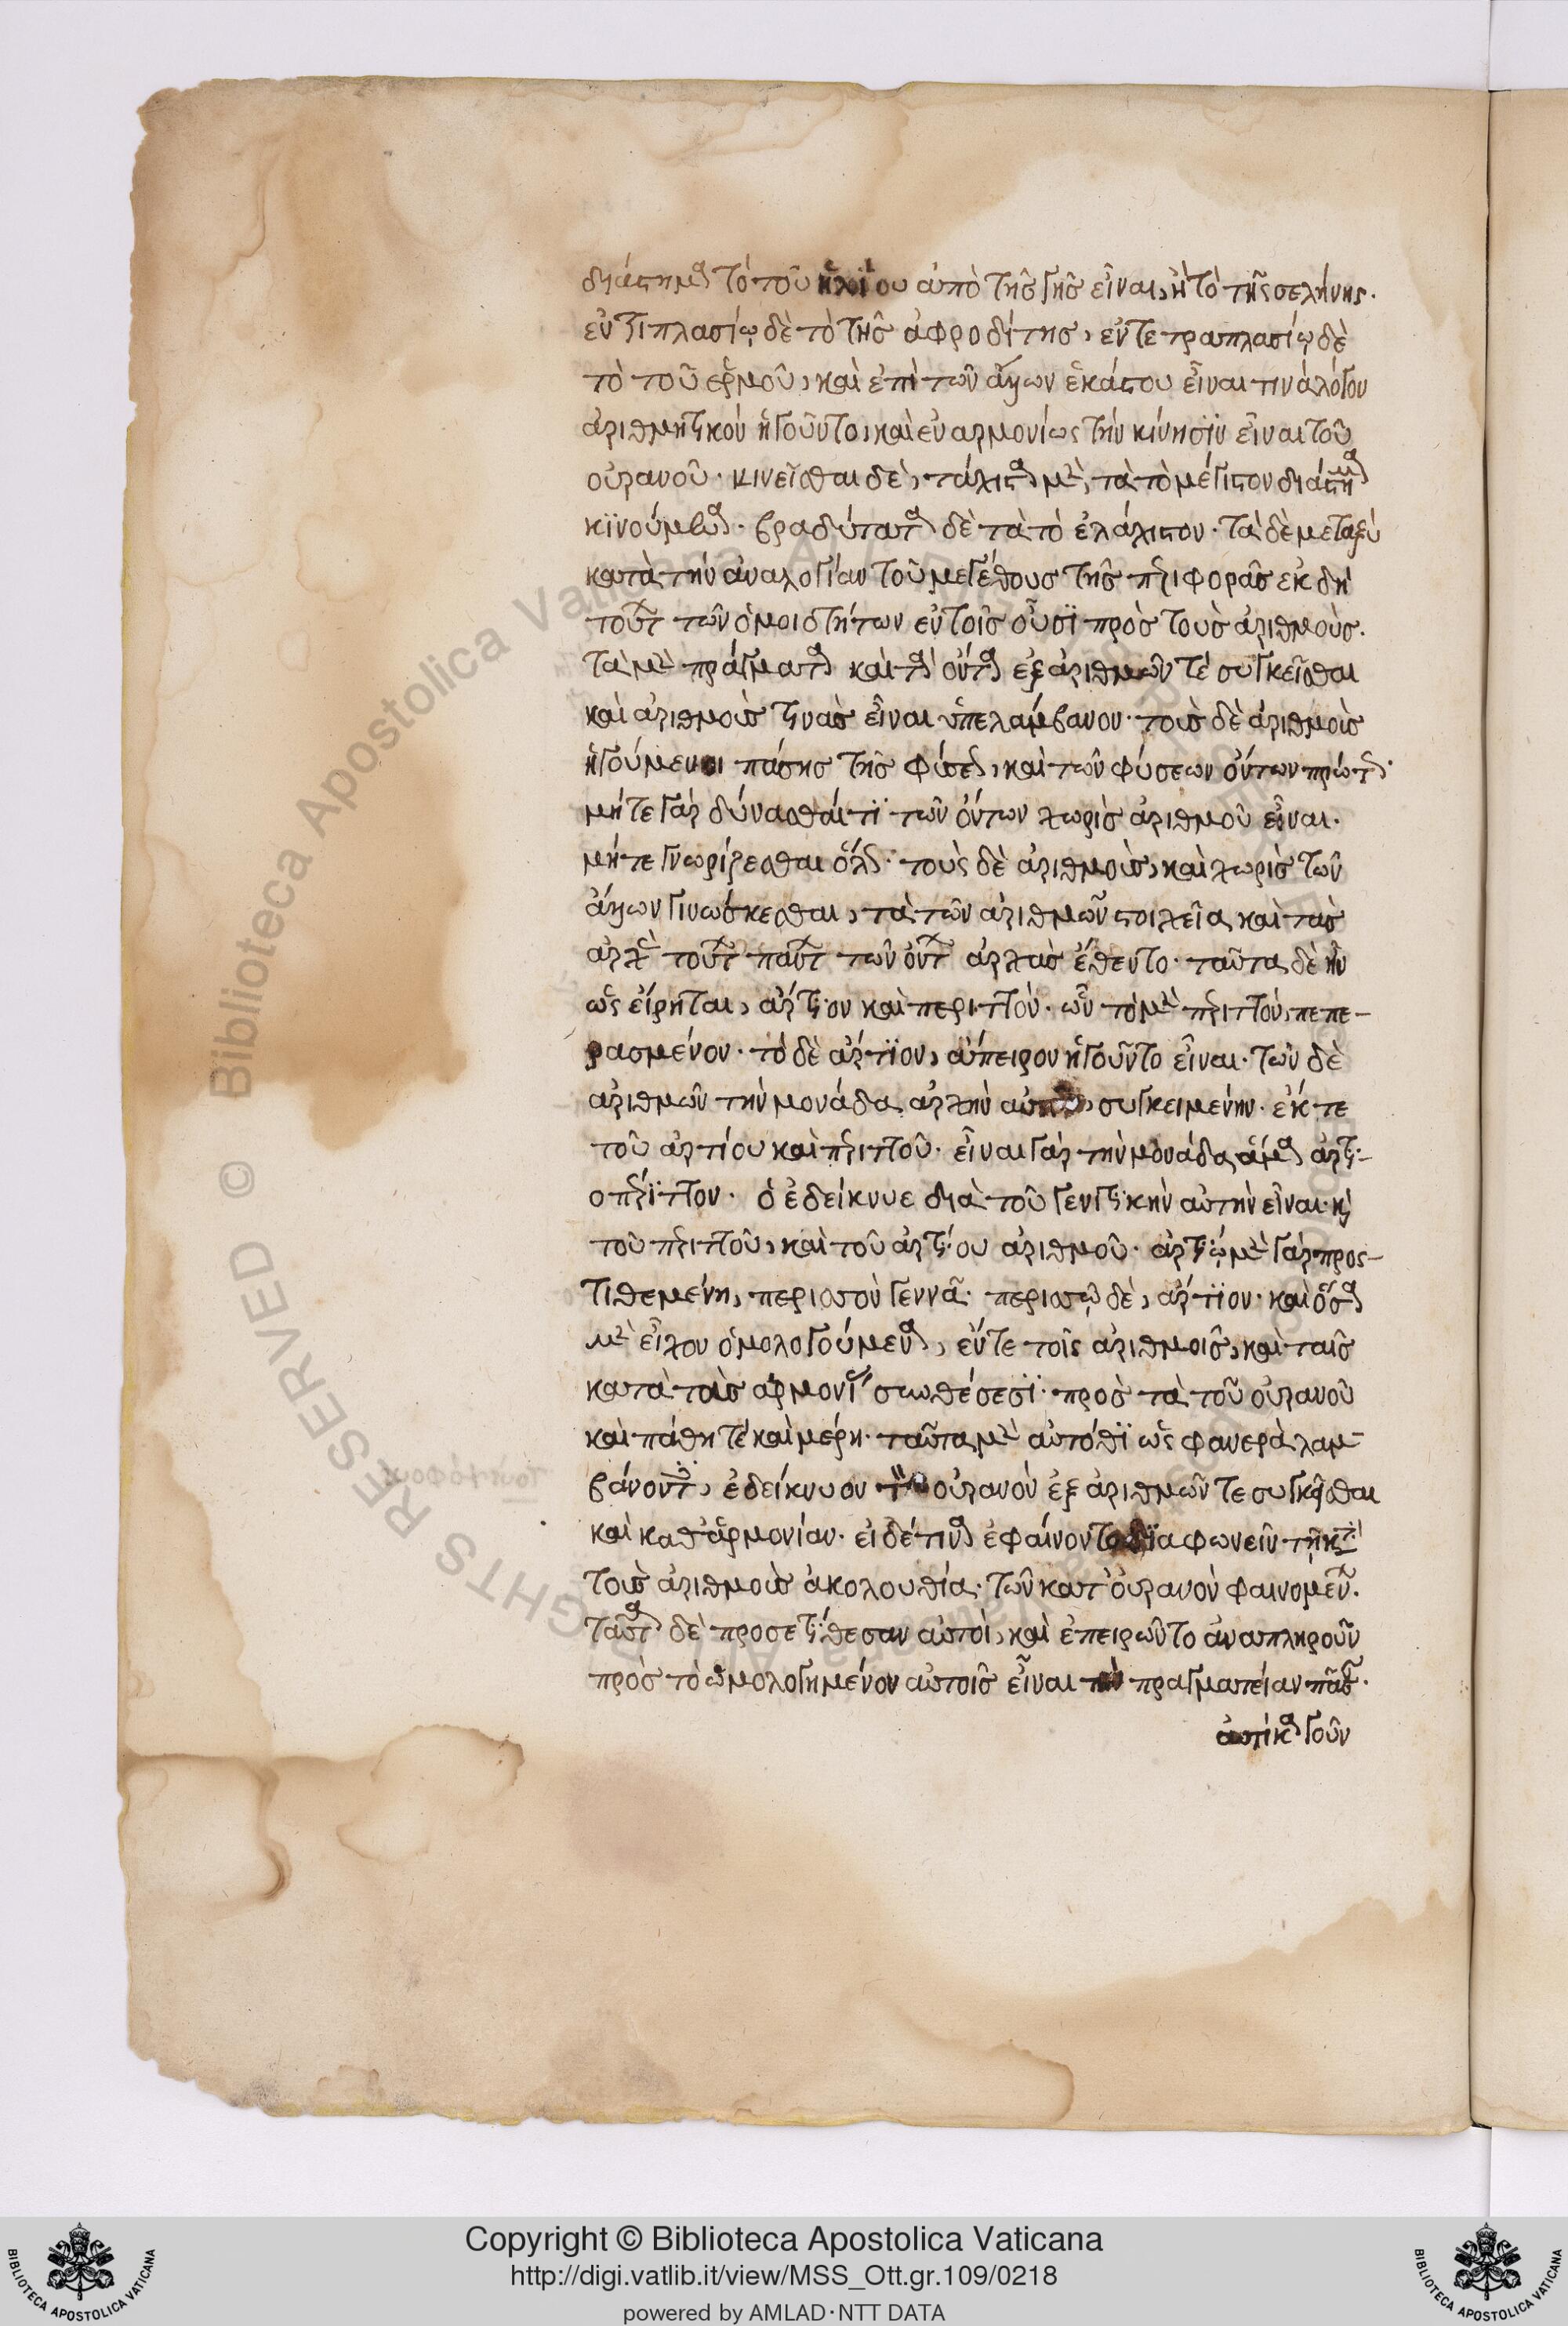 διάστημα τὸ τοῦ ἡλίου ἀπὸ τῆς γῆς εἶναι, ἢ τὸ τῆς σελήνης.
ἐν τριπλασίῳ δὲ τὸ τῆς ἀφροδίτης, ἐν τετραπλασίῳ δὲ
τὸ τοῦ ἑρμοῦ, καὶ ἐπὶ τῶν ἄλλων ἑκάστου εἶναί τινα λόγον
ἀριθμητικὸν ἡγοῦντο, καὶ ἐναρμονίως τὴν κίνησϊν εἶναι τοῦ
οὐρανοῦ. κινεῖσθαι δὲ, τάχιστα μὲν, τὰ τὸ μέγιστον διάστημα
κϊνούμενα. βραδύτατα δὲ τὰ τὸ ἐλάχιστον. τὰ δὲ μεταξὺ
κατὰ τὴν ἀναλογίαν τοῦ μεγέθους τῆς περιφορᾶς ἐκ δὴ
τούτων τῶν ὁμοιοτήτων ἐν τοῖς οὖσϊ πρὸς τοὺς ἀριθμούς.
τὰ μὲν πράγματα καὶ τὰ ὄντα ἐξ ἀριθμῶν τέ συγκεῖσθαι
καὶ ἀριθμοὺς τινὰς εἶναι ὑπελάμβανον. τοὺς δὲ ἀριθμοὺς
ἡγούμενοι πάσης τῆς φύσεως, καὶ τῶν φύσεων ὄντων πρώτους.
μήτε γὰρ δύνασθαί τϊ τῶν ὄντων χωρὶς ἀριθμοῦ εἶναι.
μήτε γνωρίζεσθαι ὅλως. τοὺς δὲ ἀριθμοὺς, καὶ χωρὶς τῶν
ἄλλων γινώσκεσθαι, τὰ τῶν ἀριθμῶν στοιχεῖα, καὶ τὰς
ἀρχὰς τούτων πάντων τῶν ὄντων ἀρχὰς ἔθεντο. ταῦτα δὲ ἦν
ὡς εἴρηται, ἄρτιον καὶ περιττόν. ὧν τὸ μὲν περιττὸν, πεπε-
ρασμένον. τὸ δὲ ἄρτϊον, ἄπειρον ἡγοῦντο εἶναι. τῶν δὲ
ἀριθμῶν τὴν μονάδα ἀρχὴν συγκειμένην. ἔκ τε
τοῦ ἀρτίου καὶ περιττοῦ. εἶναι γὰρ τὴν μονάδα ἅμα ἀρτι-
οπέρϊττον. ὃ ἐδείκνυε διὰ τοῦ γεντικὴν αὐτὴν εἶναι. καὶ
τοῦ περιττοῦ, καὶ τοῦ ἀρτίου ἀριθμοῦ. ἀρτίῳ μὲν γὰρ προς-
τιθεμένη, περισσὸν γεννᾶ. περισσῷ δὲ, ἄρτϊον. καὶ ὅσα
μὲν εἶχον ὁμολογούμενα, ἔν τε τοῖς ἀριθμοῖς, καὶ ταῖς
κατὰ τὰς ἁρμονίας συνθέσεσϊ. πρὸς τὰ τοῦ οὐρανοῦ
καὶ πάθη τὲ καὶ μέρη. ταῦτα μὲν αὐτόθϊ ὡς φανερὰ λαμ-
βάνοντες, ἐδείκνυον τὸν οὐρανὸν ἐξ ἀριθμῶν τε συγκεῖσθαι
καὶ καθ' ἁρμονίαν. εἰ δέ τινα ἐφαίνοντο δϊαφωνεῖν τῇ κατὰ
τοὺς ἀριθμοὺς ἀκολουθίᾳ. τῶν κατ' οὐρανὸν φαινομένων.
ταῦτα δὲ προσετίθεσαν αὐτοὶ, καὶ ἐπειρῶντο ἀναπληροῦν
πρὸς τὸ ὡμολογημένον αὐτοῖς εἶναι τὴν πραγματείαν πᾶσαν.
αὐτίκα γοῦν
Copyright © Biblioteca Apostolica Vaticana
http://digi.vatlib.it/view/MSS_Ott.gr.109/0218
powered by AMLAD·NTT DATA
BIBLIOTECA APOSTOLICA VATICANA
BIBLIOTECA APOSTOLICA VATICANA